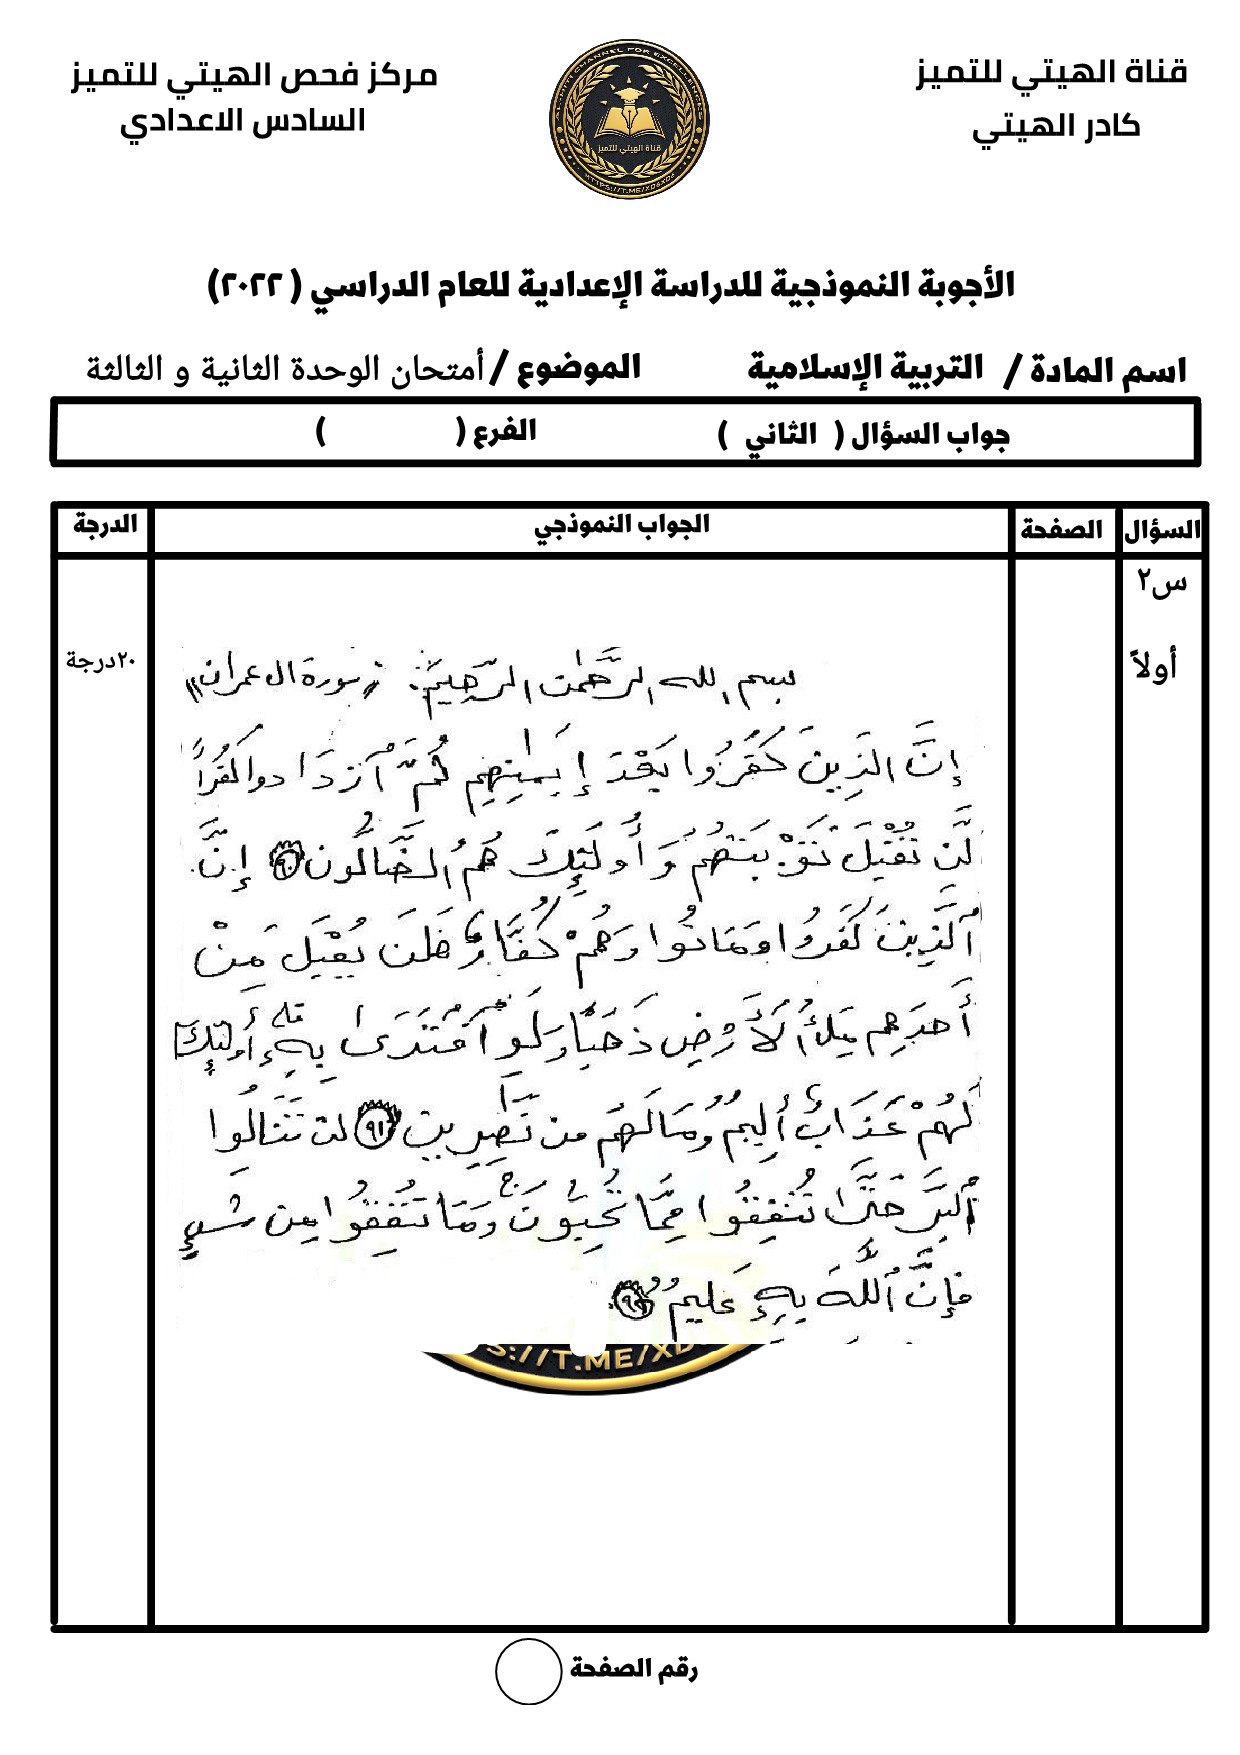 قناة الهيتي للتميز
كادر الهيتي
مركز فحص الهيتي للتميز
السادس الاعدادي
AL-HITI CHANNEL FOR EXCELLENCE
قناة الهيتي للتميز
الأجوبة النموذجية للدراسة الإعدادية للعام الدراسي ( ٢٠٢٢)
اسم المادة / التربية الإسلامية الموضوع / أمتحان الوحدة الثانية و الثالثة
جواب السؤال ( الثاني ) الفرع ( )
السؤال الصفحة الجواب النموذجي الدرجة
س٢
أولاً ٢٠درجة
بسم الله الرَّحمٰن الرَّحيم: «سورة ال عمران»
إِنَّ الذِينَ كَفَرُوا بَعْدَ إِيمَٰنِهِم ثُمَّ ٱزدَادوا كفراً
لَّن تُقْبَلَ تَوْبَتُهُم وَأُولَٰئِكَ هُمُ الضَّالُّون ٩٠ إِنَّ
ٱلَّذِينَ كَفَرُوا وَمَاتُوا وَهُمْ كُفَّارٌ فَلَن يُقْبَل مِنْ
أَحَدِهِم مِّلءُ ٱلأَرْضِ ذَهَبًا وَلَوِ ٱفْتَدَىٰ بِهِۦ أُولَٰئِكَ
لَهُمْ عَذَابٌ أَلِيمٌ وَمَا لَهُم من نَّٰصِرِين ٩١ لن تَنَالُوا
ٱلبِرَّ حَتَّىٰ تُنفِقُوا مِمَّا تُحِبُّونَ وَمَا تُنفِقُوا مِن شيءٍ
فَإِنَّ ٱللَّهَ بِهِۦ عَليمٌ ٩٢
S://T.ME/XD
رقم الصفحة